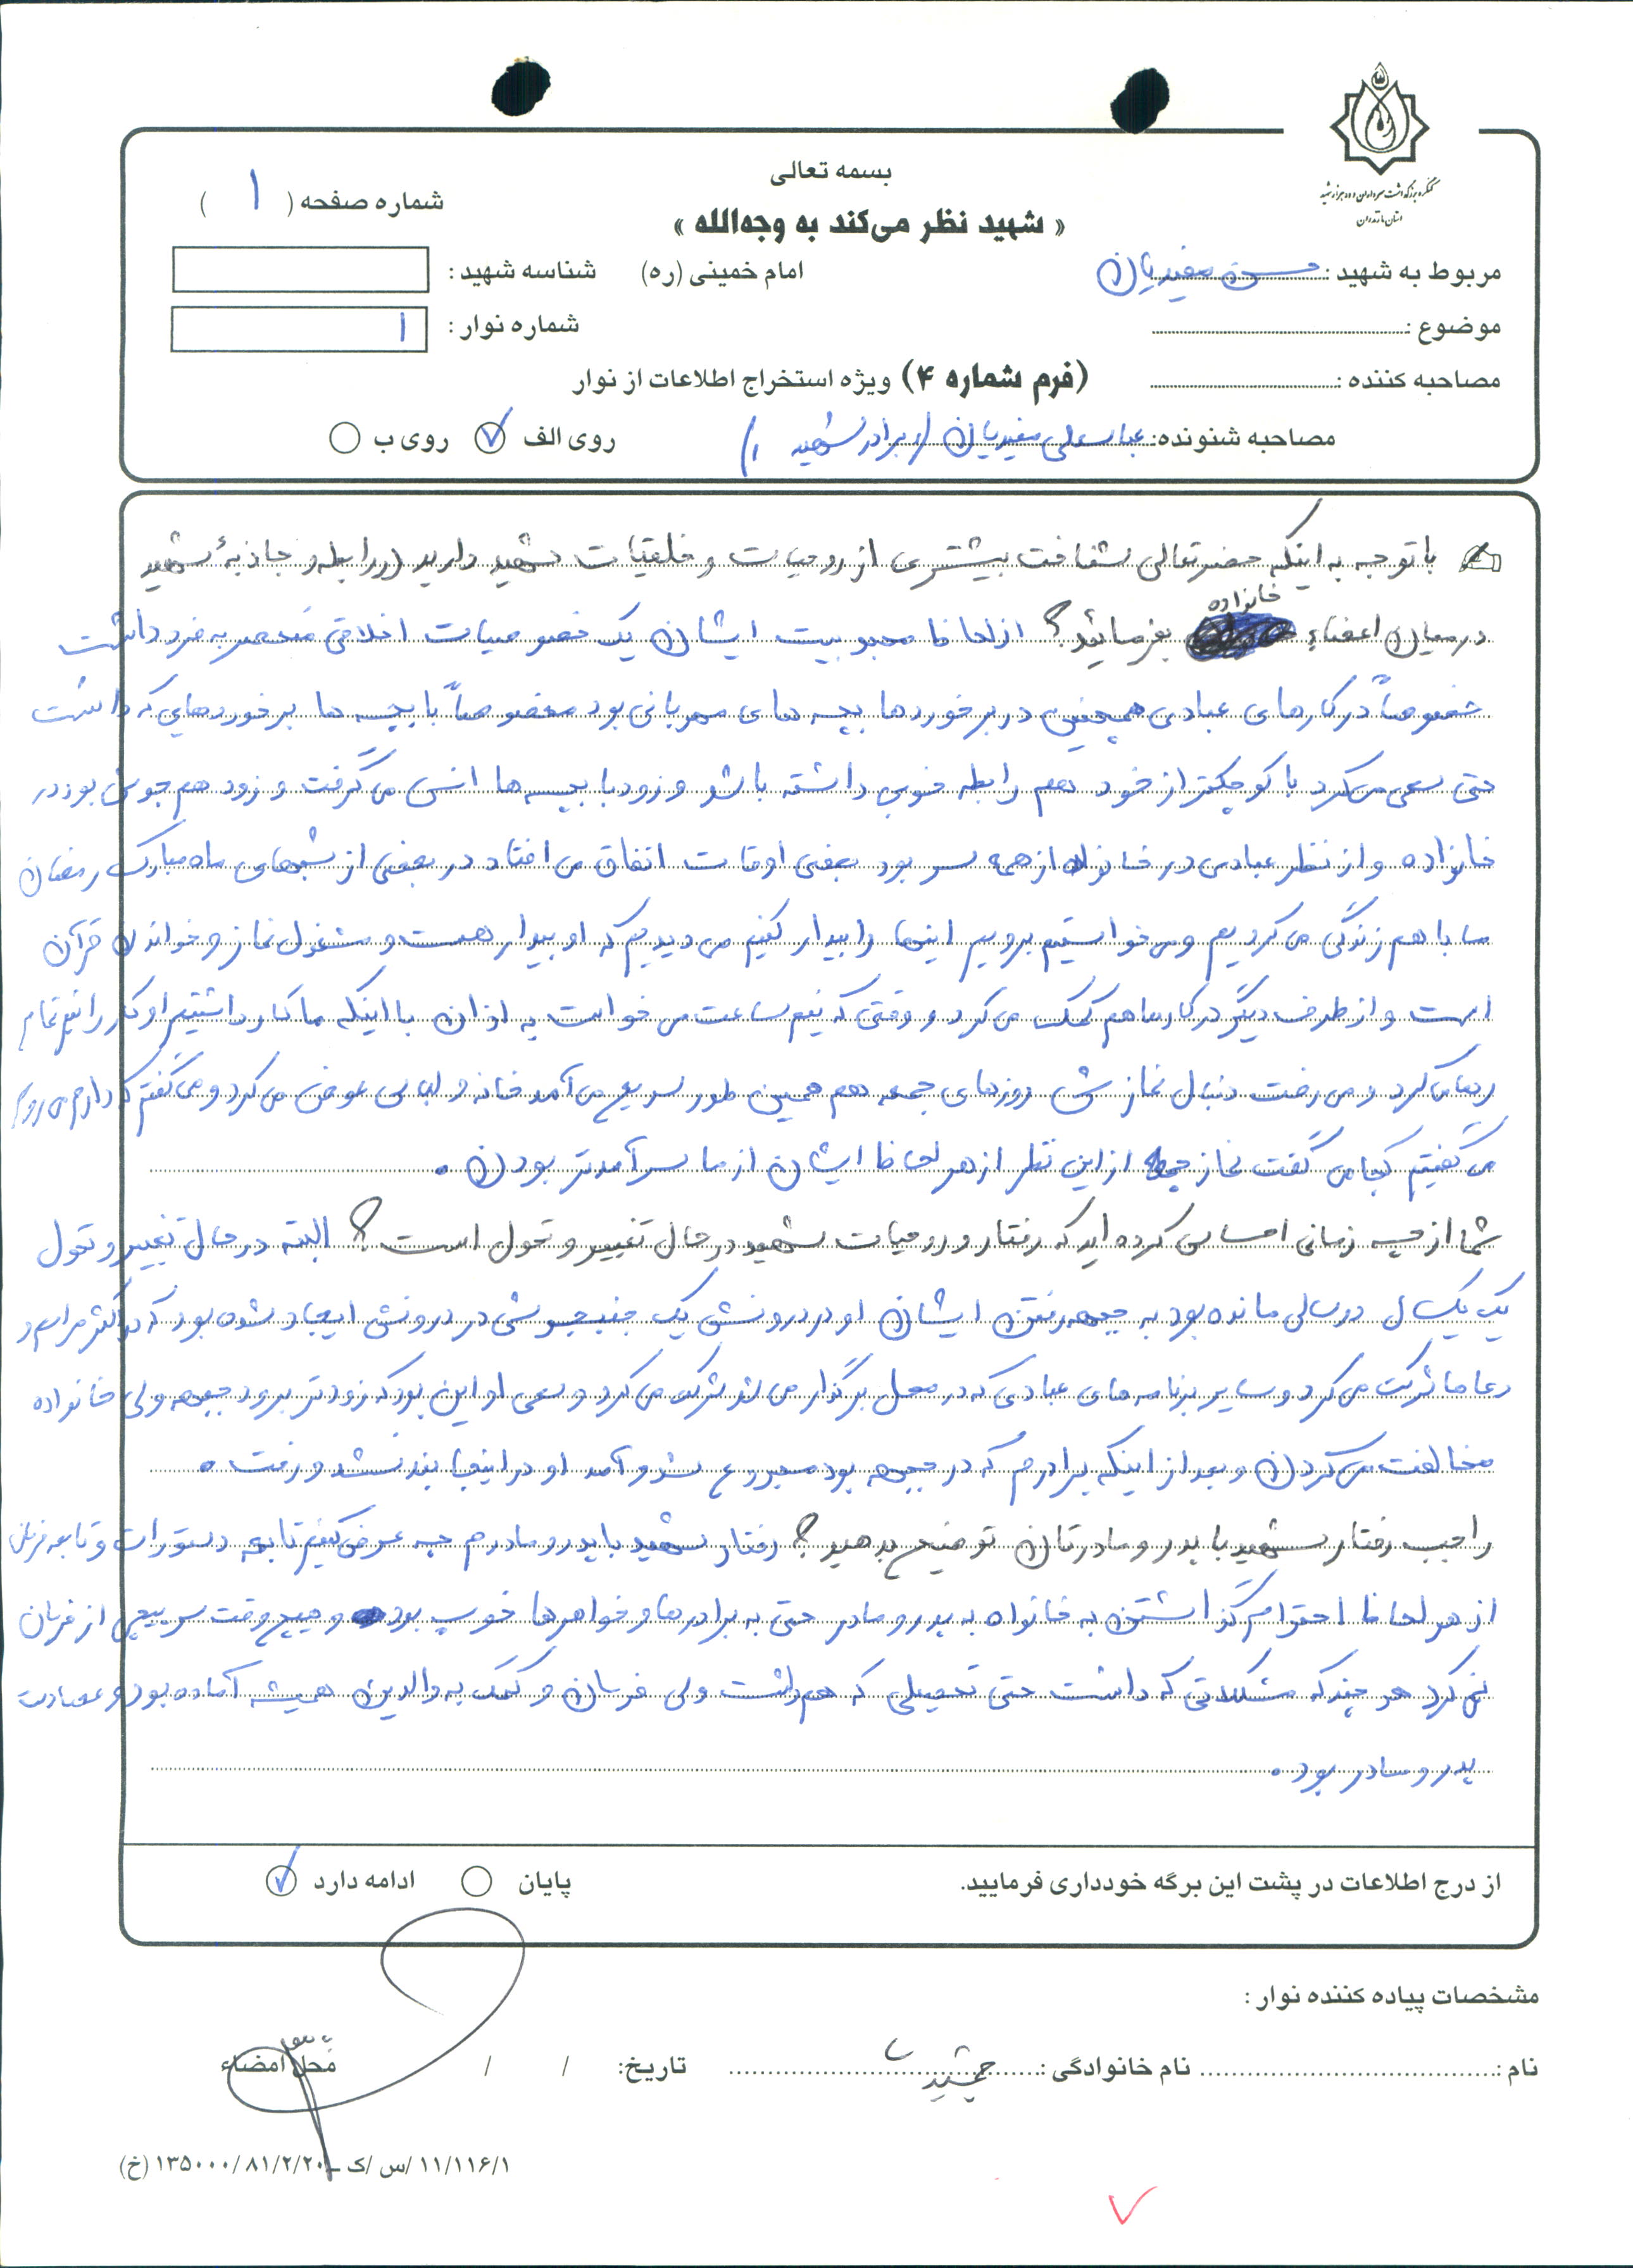 کنگره بزرگداشت سرداران و ده هزار شهید
استان مازندران
بسمه تعالی
شماره صفحه ( ۱ )
« شهید نظر می‌کند به وجه‌الله »
مربوط به شهید : حسن سفیدیان
امام خمینی (ره)
شناسه شهید :
موضوع :
شماره نوار : ۱
مصاحبه کننده :
(فرم شماره ۴) ویژه استخراج اطلاعات از نوار
مصاحبه شنونده: عباسعلی سفیدیان (برادر شهید)
روی الف روی ب
با توجه به اینکه حضرتعالی شناخت بیشتری از روحیات و خلقیات شهید دارید در رابطه و جاذبهٔ شهید
در میان اعضاء خانواده بفرمائید؟ از لحاظ محبوبیت ایشان یک خصوصیات اخلاقی منحصر به فرد داشت
خصوصاً در کارهای عبادی همچنین در برخوردها بچه های مهربانی بود مخصوصاً با بچه ها برخوردهایی که داشت
حتی سعی می کرد با کوچکتر از خود هم رابطه خوبی داشته باشد و زود با بچه ها انس می گرفت و زود هم جوش بود در
خانواده و از نظر عبادی در خانواده از همه سر بود بعضی اوقات اتفاق می افتاد در بعضی از شبهای ماه مبارک رمضان
ما با هم زندگی می کردیم و می خواستیم برویم اینها را بیدار کنیم می دیدیم که او بیدار هست و مشغول نماز و خواندن قرآن
است و از طرف دیگر در کار ما هم کمک می کرد و وقتی که نیم ساعت می خواست به اذان با اینکه ما کار داشتیم او کار را نیم تمام
رها می کرد و می رفت دنبال نمازش روزهای جمعه هم همین طور سریع می آمد خانه و لباس عوض می کرد و می گفتم که دارم می روم
می گفتیم کجا می گفت نماز جمعه از این نظر از هر لحاظ ایشان از ما سرآمدتر بودن .
شما از چه زمانی احساس کرده اید که رفتار و روحیات شهید در حال تغییر و تحول است؟ البته در حال تغییر و تحول
یک یکسال دو سالی مانده بود به جبهه رفتن ایشان او در درونش یک جنب جوشی در درونش ایجاد شده بود که در اکثر مراسم و
دعاها شرکت می کرد و سایر برنامه های عبادی که در محل برگزار می شد شرکت می کرد و سعی او این بود که زودتر برود جبهه ولی خانواده
مخالفت می کردن و بعد از اینکه برادرم که در جبهه بود مجروح شد و آمد او در اینجا بند نشد و رفت .
راجب رفتار شهید با پدر و مادرتان توضیح بدهید؟ رفتار شهید با پدر و مادرم چه عرض کنیم تابع دستورات و تابع فرمان
از هر لحاظ احترام گذاشتن به خانواه به پدر و مادر حتی به برادرها و خواهرها خوب بود و هیچ وقت سرپیچی از فرمان
نمی کرد هر چند که مشکلاتی که داشت حتی تحصیلی که هم داشت ولی فرمان و کمک به والدین همیشه آماده بود و عصادت
پدر و مادر بود .
از درج اطلاعات در پشت این برگه خودداری فرمایید.
پایان ادامه دارد
مشخصات پیاده کننده نوار :
نام : نام خانوادگی : جمشیدی تاریخ: / / محل امضاء
۱۱/۱۱۶/۱ /س /ک _ ۱۳۵۰۰۰/ ۸۱/۲/۲۰ (خ)